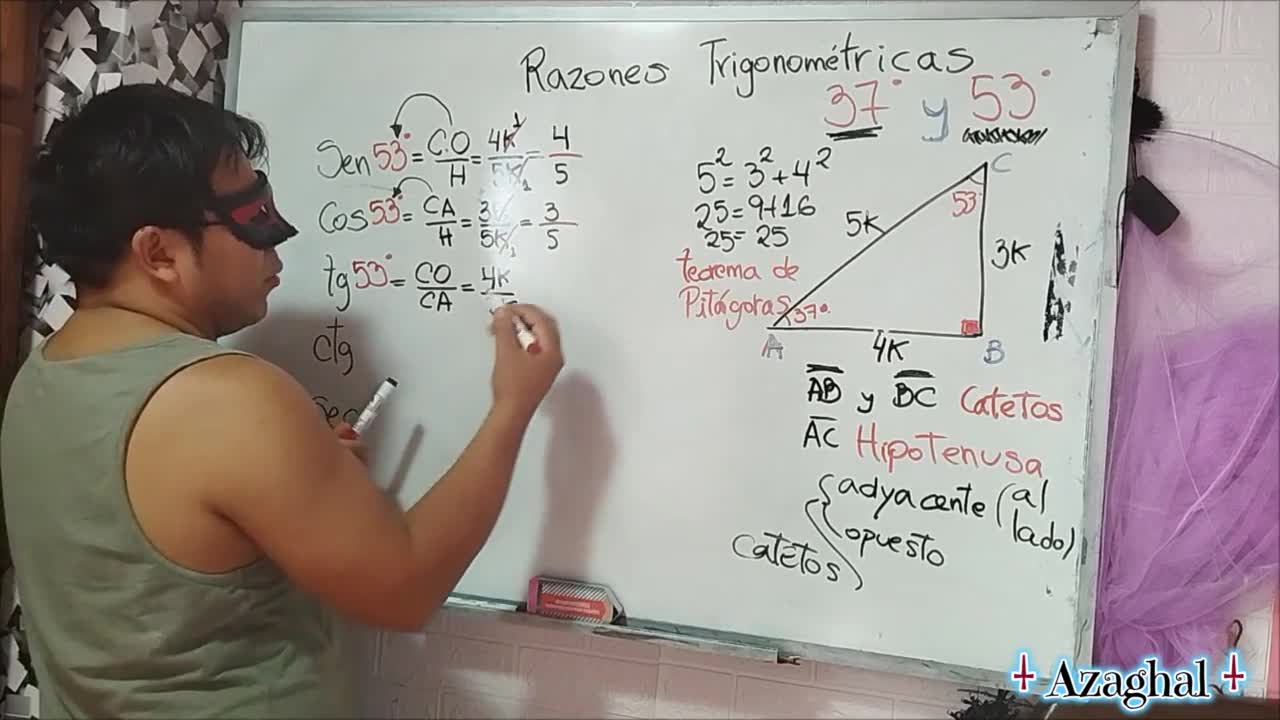 Razones Trigonométricas
37° y 53°
Sen 53° = C.O/H = 4K/5K = 4/5
1
1
Cos 53° = CA/H = 3K/5K = 3/5
1
tg 53° = CO/CA = 4K
ctg
Sec
5² = 3² + 4²
25 = 9+16
25 = 25
teorema de
Pitágoras
C
53°
5K
3K
37°
A
4K
B
AB y BC Catetos
AC Hipotenusa
Catetos
adyacente (al
lado)
opuesto
Azaghal